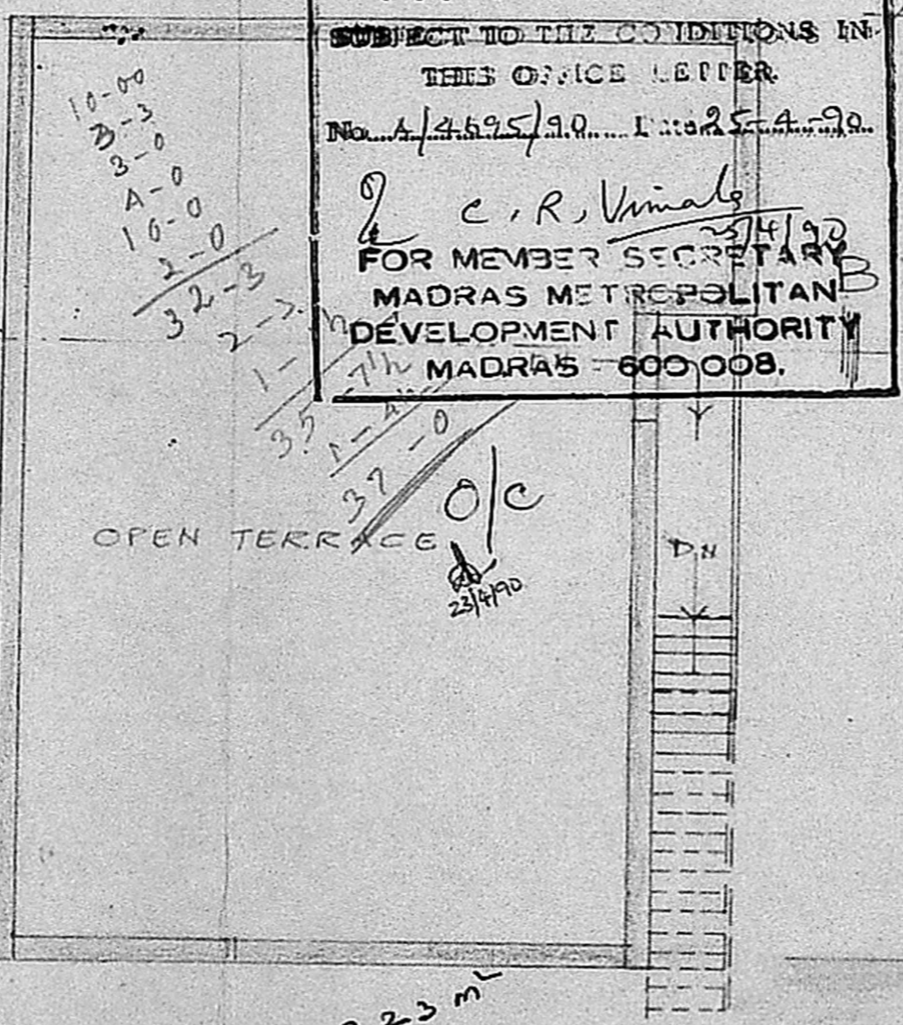 SUBJECT TO THE CONDITIONS IN
THIS OFFICE LETTER.
No. A/4695/90 25-4-90
C. R, Vimala
25/4/90
FOR MEMBER SECRETARY
MADRAS METROPOLITAN
DEVELOPMENT AUTHORITY
MADRAS - 600 008.
B
10-00
3-0
A-0
10-0
2-0
32-3
37-0
O/C
23/4/90
OPEN TERRACE
DN
23 m²